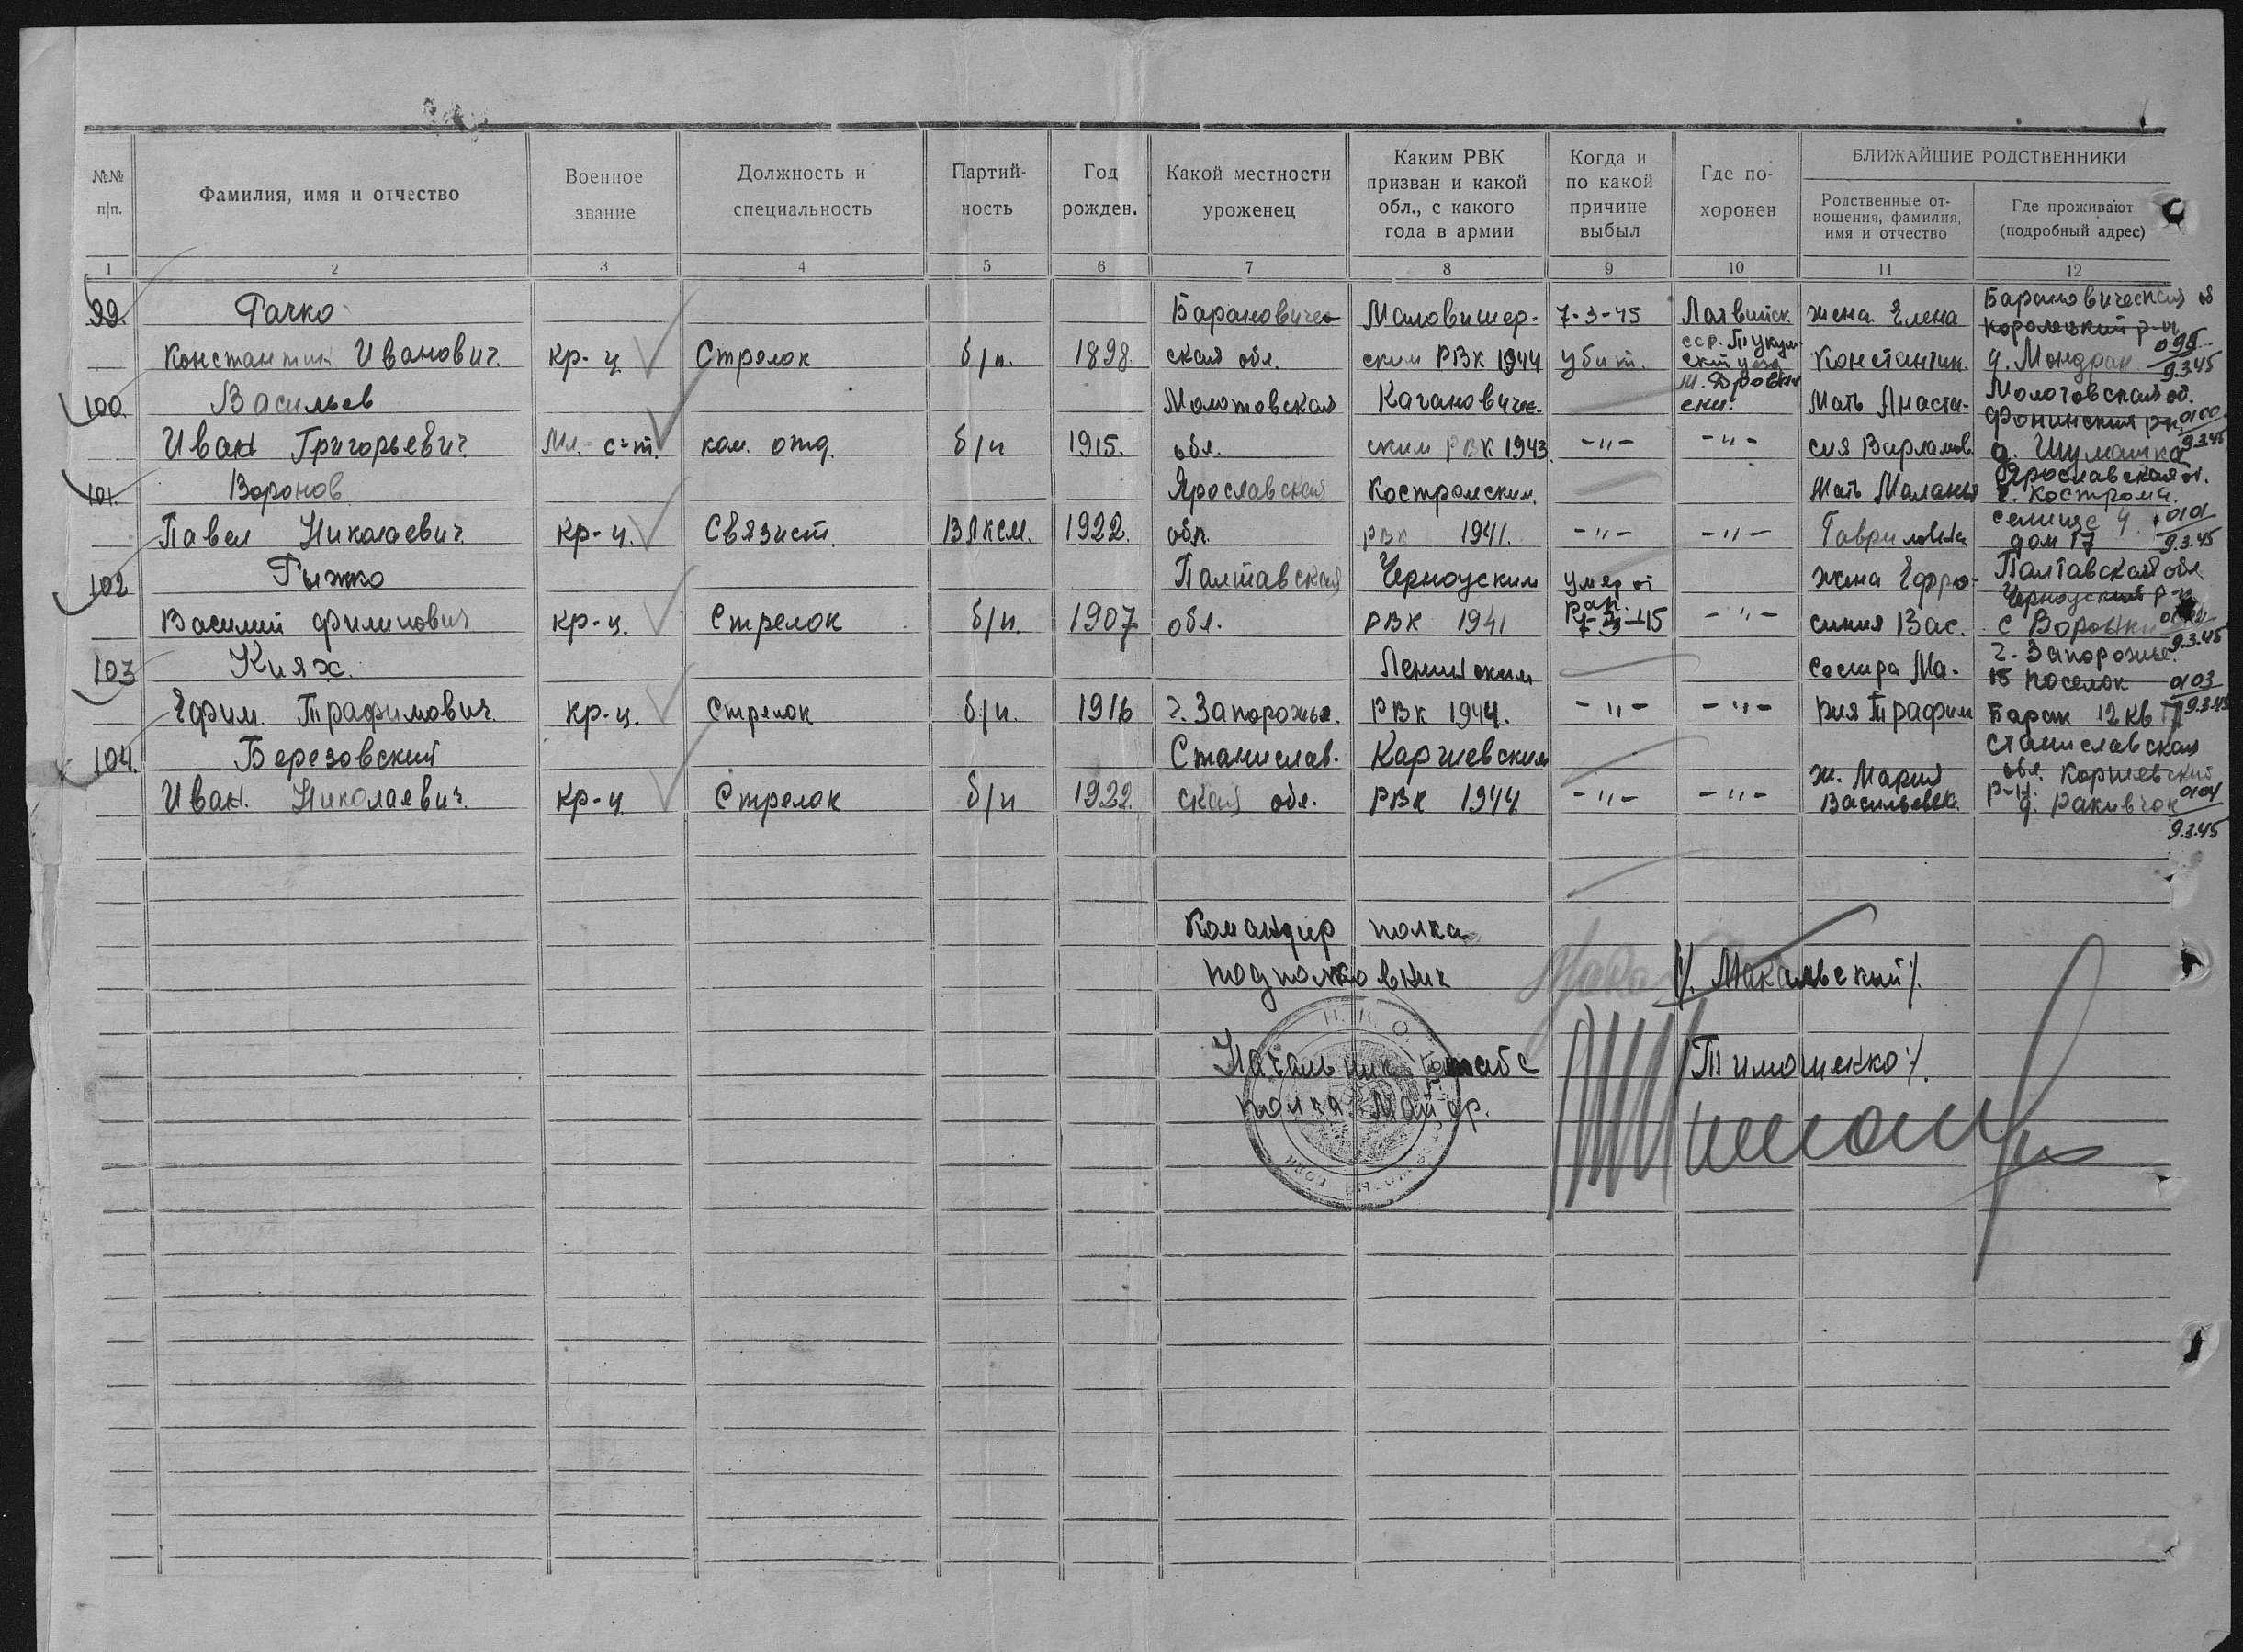 №№ п|п.
Фамилия, имя и отчество
Военное звание
Должность и специальность
Партий-ность
Год рожден.
Какой местности уроженец
Каким РВК призван и какой обл., с какого года в армии
Когда и по какой причине выбыл
Где по-хоронен
БЛИЖАЙШИЕ РОДСТВЕННИКИ
Родственные от-ношения, фамилия, имя и отчество
Где проживают (подробный адрес)
1 2 3 4 5 6 7 8 9 10 11 12
99. Гачко Барановиче- Маловишер- 7-3-45 Латвийск. жена Елена Барановическая об
Константин Иванович. кр-ц Стрелок б/п. 1898. ская обл. ским РВК 1944 убит. сср. Тукум- Константин. д. Мондран 099 9.3.45
100. Васильев Молотовская Кагановиче- Мать Анаста- Молотовская об.
Иван Григорьевич. Мл. с-т. ком. отд. б/п 1915. обл. ским РВК 1943 -"- -"- сия Варламов. д. Шумашка 0100 9.3.45
101. Воронов Ярославская Костромским Мать Маланья Ярославская о. г. Кострома.
Павел Николаевич. кр-ц. Связист. ВЛКСМ. 1922. обл. РВК 1941. -"- -"- Гавриловна селище 4 дом 17 0101 9.3.45
102 Рыжко Полтавская Черноуским умер от жена Ефро- Полтавская обл
Василий Филипович кр-ц. Стрелок б/п. 1907 обл. РВК 1941 ран. 7-3-45 -"- синия Вас. Черноуский р-н с Воронки 9.3.45
103 Княх. Ленинским сестра Ма- г. Запорожье.
Ефим. Трафимович. кр-ц. Стрелок б/п. 1916 г. Запорожье. РВК 1944. -"- -"- рия Трафим 15 поселок Барак 12 кв 17 0103 9.3.45
104. Березовский Станислав- Каршевским ж. Мария Станиславская
Иван. Николаевич. кр-ц Стрелок б/п 1922. ская обл. РВК 1944 -"- -"- Васильевн. обл. Коршевский р-н. д. Ракивчок 0104 9.3.45
Командир полка
подполковник /. Макальский /.
Начальник штаба /Тимошенко /.
полка Майор.